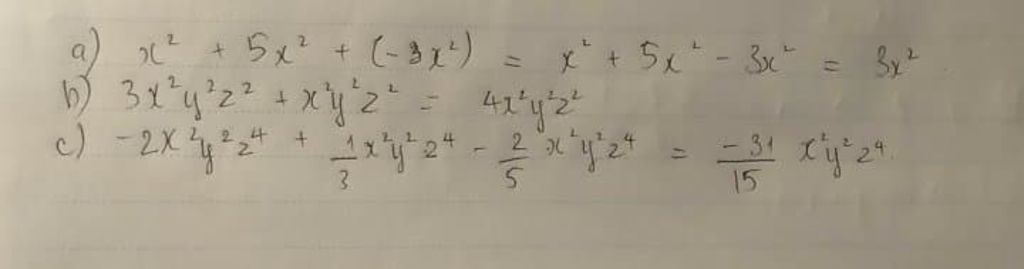 a) x² + 5x² + (-3x²) = x² + 5x² - 3x² = 3x²
b) 3x²y²z² + x²y²z² = 4x²y²z²
c) -2x²y²z⁴ + 1/3 x²y²z⁴ - 2/5 x²y²z⁴ = -31/15 x²y²z⁴